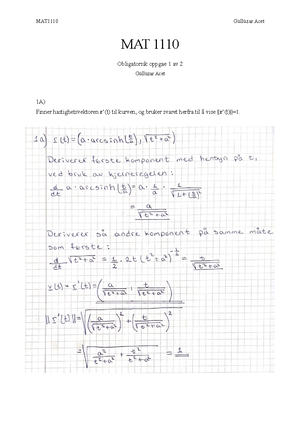 MAT1110
Güllüzar Acet
MAT 1110
Obligatorisk oppgave 1 av 2
Güllüzar Acet
1A)
Finner hastighetsvektoren r'(t) til kurven, og bruker svaret herfra til å vise ||r'(t)||=1.
1a) r(t) = (a·arcsinh(t/a), √(t²+a²))
Deriverer første komponent med hensyn på t,
ved bruk av kjerneregelen:
d/dt a·arcsinh(t/a) = a · 1/a · 1/√(1+(t/a)²)
= a/√(t²+a²)
Deriverer så andre komponent på samme måte
som første:
d/dt √(t²+a²) = 1/2 · 2t (t²+a²)^(-1/2) = t/√(t²+a²)
v(t) = r'(t) = (a/√(t²+a²), t/√(t²+a²))
||r'(t)|| = √((a/√(t²+a²))² + (t/√(t²+a²))²)
= √(a²/(t²+a²) + t²/(t²+a²)) = 1